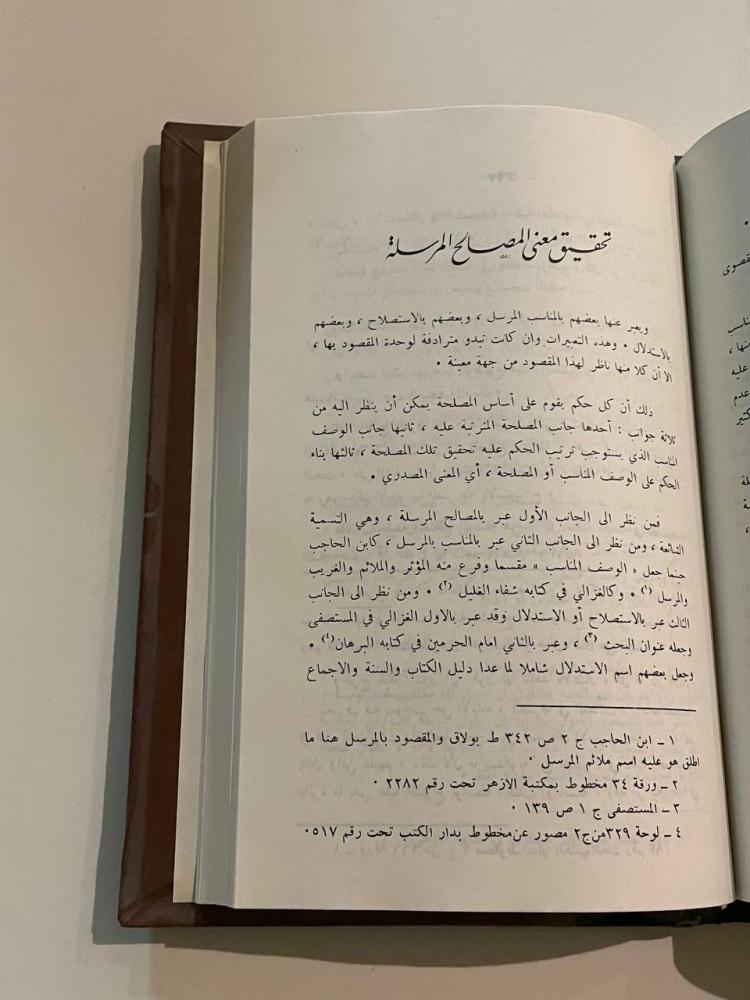 تحقيق معنى المصالح المرسلة
ويعبر عنها بعضهم بالمناسب المرسل ، وبعضهم بالاستصلاح ، وبعضهم
بالاستدلال . وهذه التعبيرات وان كانت تبدو مترادفة لوحدة المقصود بها ،
الا أن كلا منها ناظر لهذا المقصود من جهة معينة .
ذلك أن كل حكم يقوم على أساس المصلحة يمكن أن ينظر اليه من
ثلاثة جوانب : أحدها جانب المصلحة المترتبة عليه ، ثانيها جانب الوصف
المناسب الذي يستوجب ترتيب الحكم عليه تحقيق تلك المصلحة ، ثالثها بناء
الحكم على الوصف المناسب أو المصلحة ، أي المعنى المصدري .
فمن نظر الى الجانب الأول عبر بالمصالح المرسلة ، وهي التسمية
الشائعة ، ومن نظر الى الجانب الثاني عبر بالمناسب بالمرسل ، كابن الحاجب
حينما جعل « الوصف المناسب » مقسما وفرع منه المؤثر والملائم والغريب
والمرسل (١) . وكالغزالي في كتابه شفاء الغليل (٢) . ومن نظر الى الجانب
الثالث عبر بالاستصلاح أو الاستدلال وقد عبر بالاول الغزالي في المستصفى
وجعله عنوان البحث (٣) ، وعبر بالثاني امام الحرمين في كتابه البرهان(٤) .
وجعل بعضهم اسم الاستدلال شاملا لما عدا دليل الكتاب والسنة والاجماع
١ ــ ابن الحاجب ج ٢ ص ٣٤٢ ط بولاق والمقصود بالمرسل هنا ما
اطلق هو عليه اسم ملائم المرسل .
٢ ــ ورقة ٣٤ مخطوط بمكتبة الازهر تحت رقم ٢٢٨٢ .
٣ ــ المستصفى ج ١ ص ١٣٩ .
٤ ــ لوحة ٣٢٩من ج٢ مصور عن مخطوط بدار الكتب تحت رقم ٥١٧.
قصوى
ناسب
منها ،
عليه
عدم
كثير